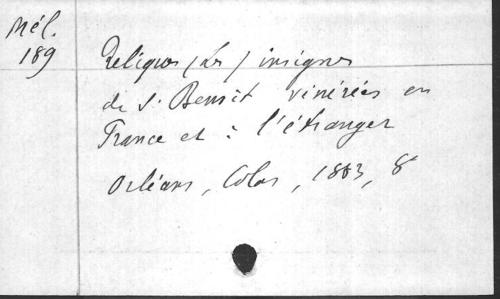 Mél.
189
Reliques (Les) insignes
de S. Benoît vénérées en
France et à l'étranger
Orléans, Colas, 1883, 8°